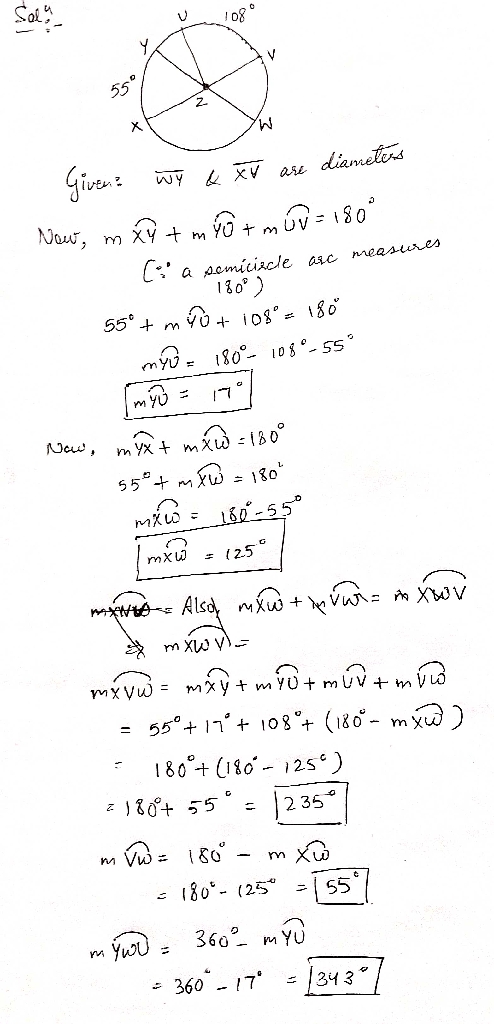 Solⁿ:-
U 108°
Y
V
55°
Z
X
W
Given: WY & XV are diameters
Now, m XY + m YU + m UV = 180°
(∵ a semicircle arc measures
180°)
55° + m YU + 108° = 180°
mYU = 180° - 108° - 55°
mYU = 17°
Now, mYX + mXW = 180°
55° + mXW = 180°
mXW = 180° - 55°
mXW = 125°
= Also, mXW + mVW = m XWV
⇒ mXWV =
mXVW = mXY + mYU + mUV + mVW
= 55° + 17° + 108° + (180° - mXW)
= 180° + (180° - 125°)
= 180° + 55° = 235°
m VW = 180° - m XW
= 180° - 125° = 55°
m YWU = 360° - mYU
= 360° - 17° = 343°